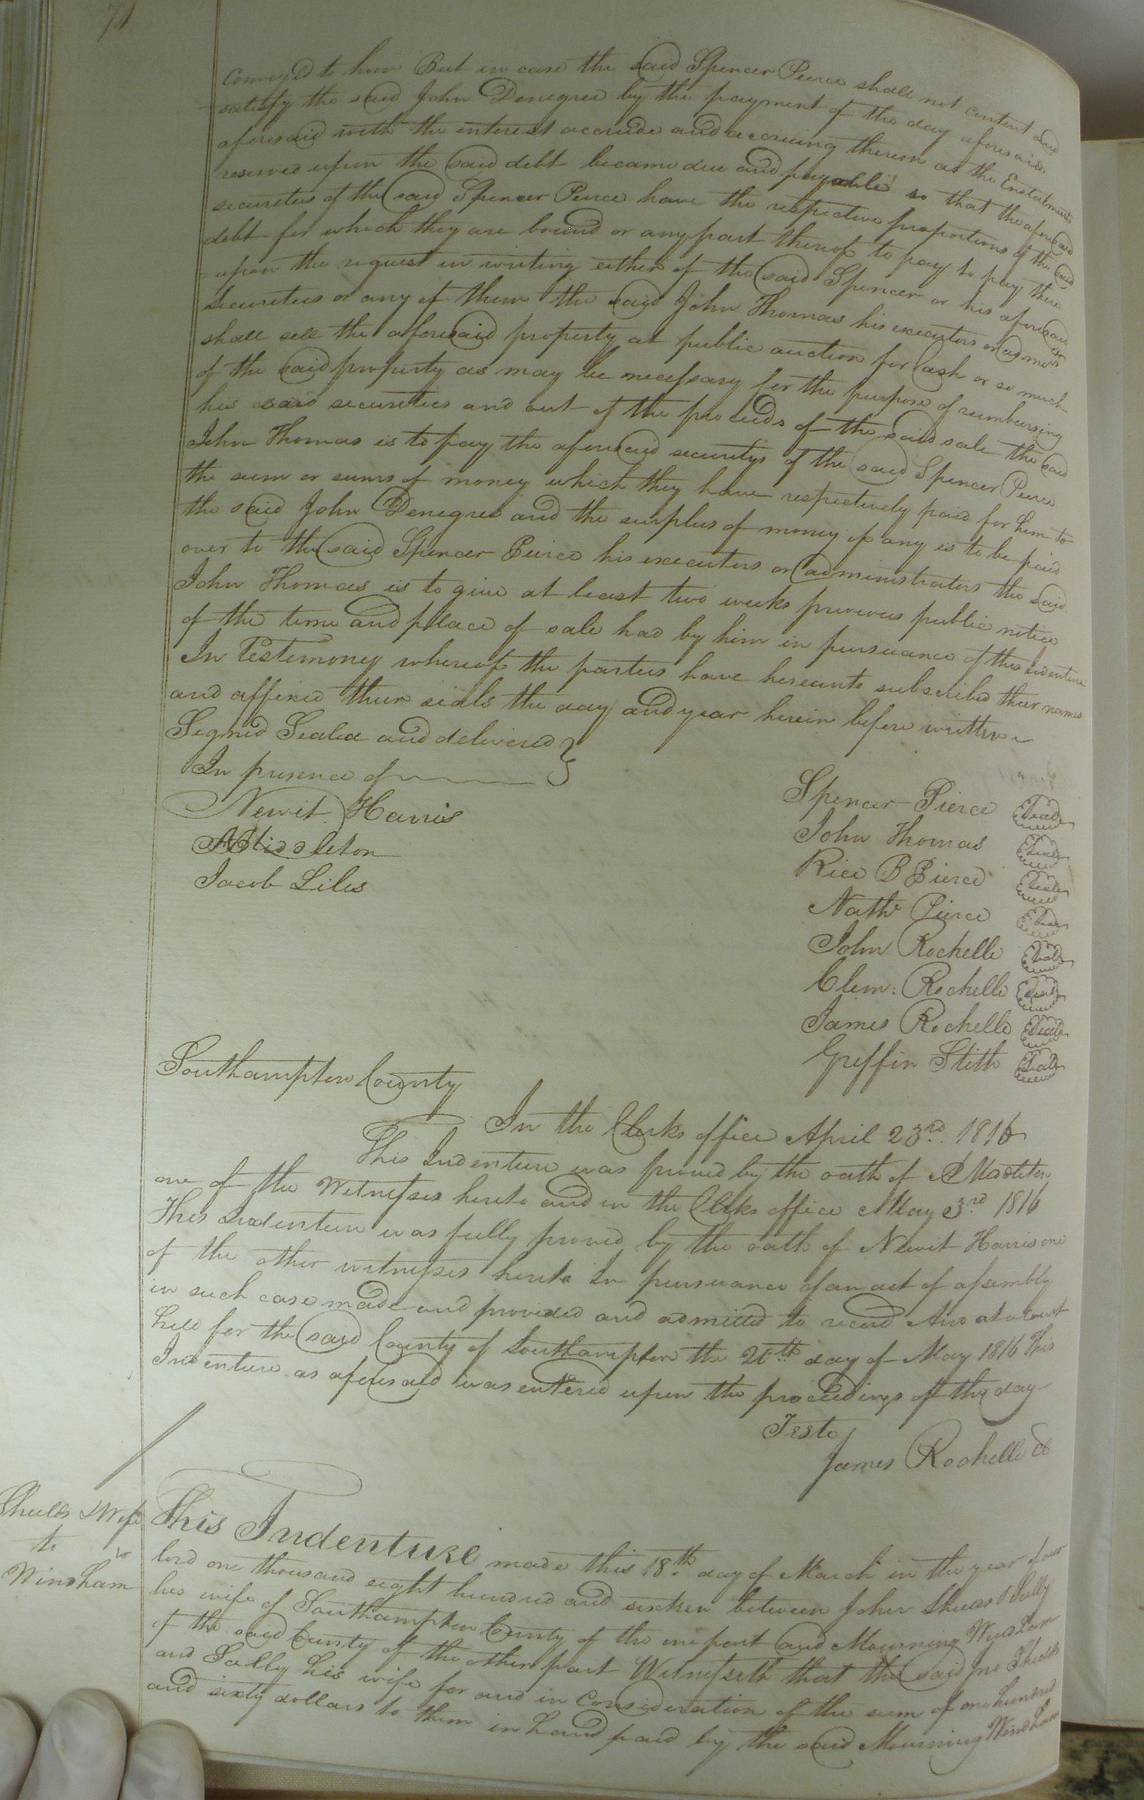 conveyed to him But in case the said Spencer Peirce shall not content and
satisfy the said John Denegree by the payment of the day aforesaid
aforesaid with the interest accrude and accrueing thereon as the Enstalments
reserved upon the said debt became due and payable so that the aforesaid
securities of the said Spencer Peirce have the respective proportions of the said
debt for which they are bound or any part thereof to pay to pay then
upon the request in writing either of the said Spencer or his aforesaid
securities or any of them the said John Thomas his executors or admors
shall sell the aforesaid property at public auction for Cash or so much
of the said property as may be necessary for the purpose of reimbursing
his said securities and out of the proceeds of the said sale the said
John Thomas is to pay the aforesaid securitys of the said Spencer Peirce
the sum or sums of money which they have respectively paid for him to
the said John Denegree and the surplus of money if any is to be paid
over to the said Spencer Peirce his executors or administrators the said
John Thomas is to give at least two weeks previous public notice
of the time and place of sale had by him in pursuance of this Indenture
In Testimoney whereof the parties have hereunto subscribed their names
and affixed their seals the day and year herein before written
Signed Sealed and delivered }
In presence of
Newit Harris
A Middleton
Jacob Liles
Spencer Pierce Seal
John Thomas Seal
Rice B Pierce Seal
Nathl Pierce Seal
John Rochelle Seal
Clem: Rochelle Seal
James Rochelle Seal
Griffin Stith Seal
Southampton County
In the Clerks office April 23rd 1816
This Indenture was proved by the oath of A Middleton
one of the Witnesses hereto and in the Clerks office May 3rd 1816
This Indenture was fully proved by the oath of Newit Harris one
of the other witnesses hereto In pursuance of an act of assembly
in such case made and provided and admitted to record And at a Court
held for the said County of Southampton the 20th day of May 1816 This
Indenture as aforesaid was entered upon the proceedings of the day
Teste
James Rochelle Cl
Shields & Wife
to
Windham
This Indenture made this 18th day of March in the year of our
lord one thousand eight hundred and sixteen between John Shields & Sally
his wife of Southampton County of the one part and Mourning Windham
of the said County of the other part Witnesseth that the said Jno Shields
and Sally his wife for and in Consideration of the sum of one hundred
and sixty dollars to them in hand paid by the said Mourning Windham